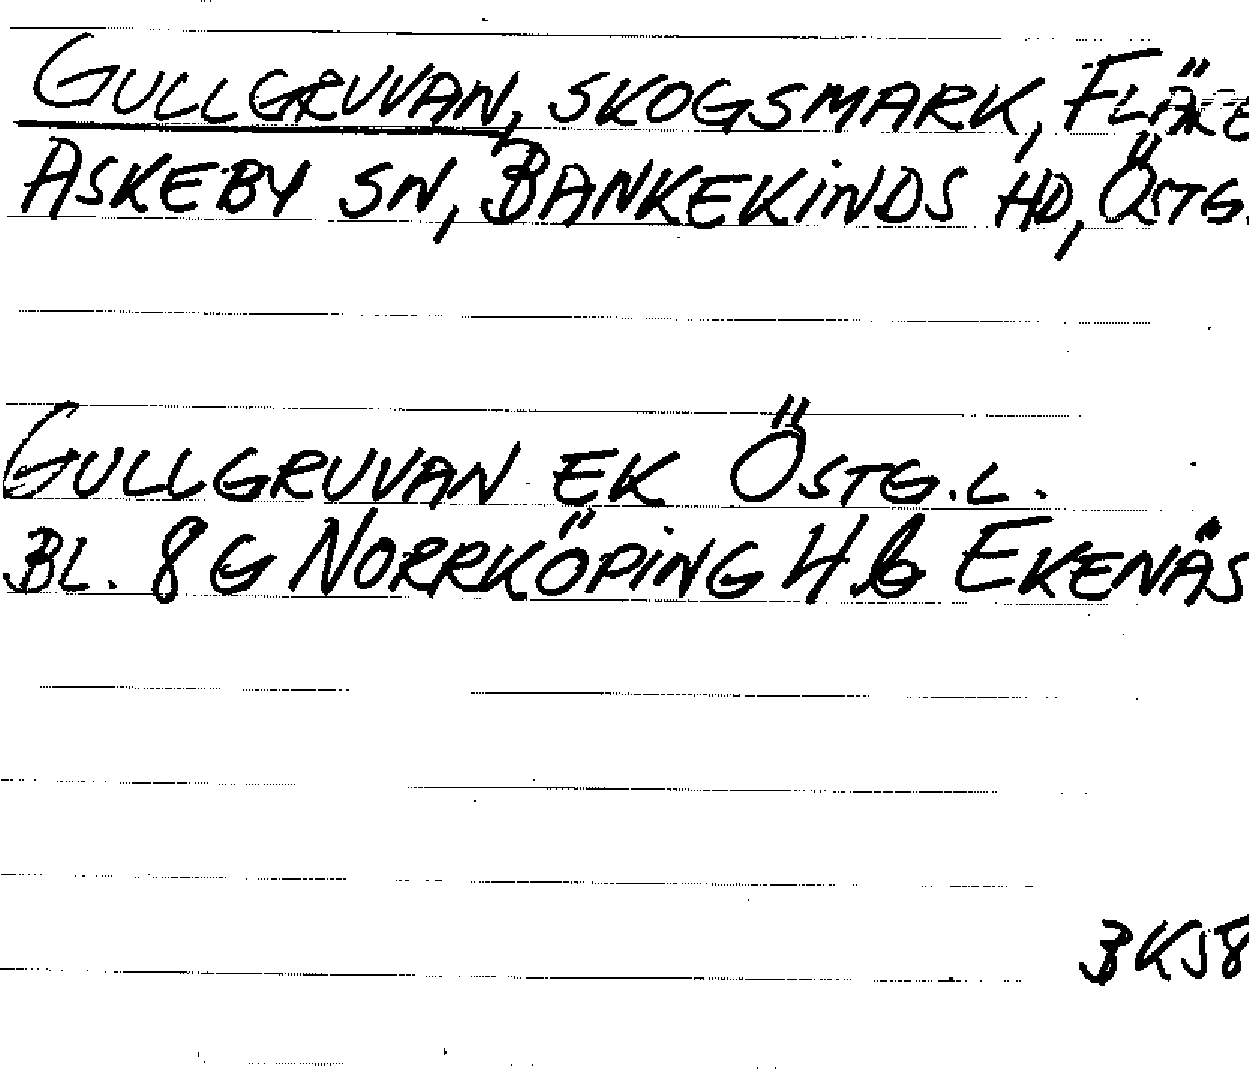 GULLGRUVAN, SKOGSMARK,
ASKEBY SN, BANKEKINDS HD, ÖSTG.
GULLGRUVAN EK ÖSTG.L.
BL. 8 G NORRKÖPING EKENÄS